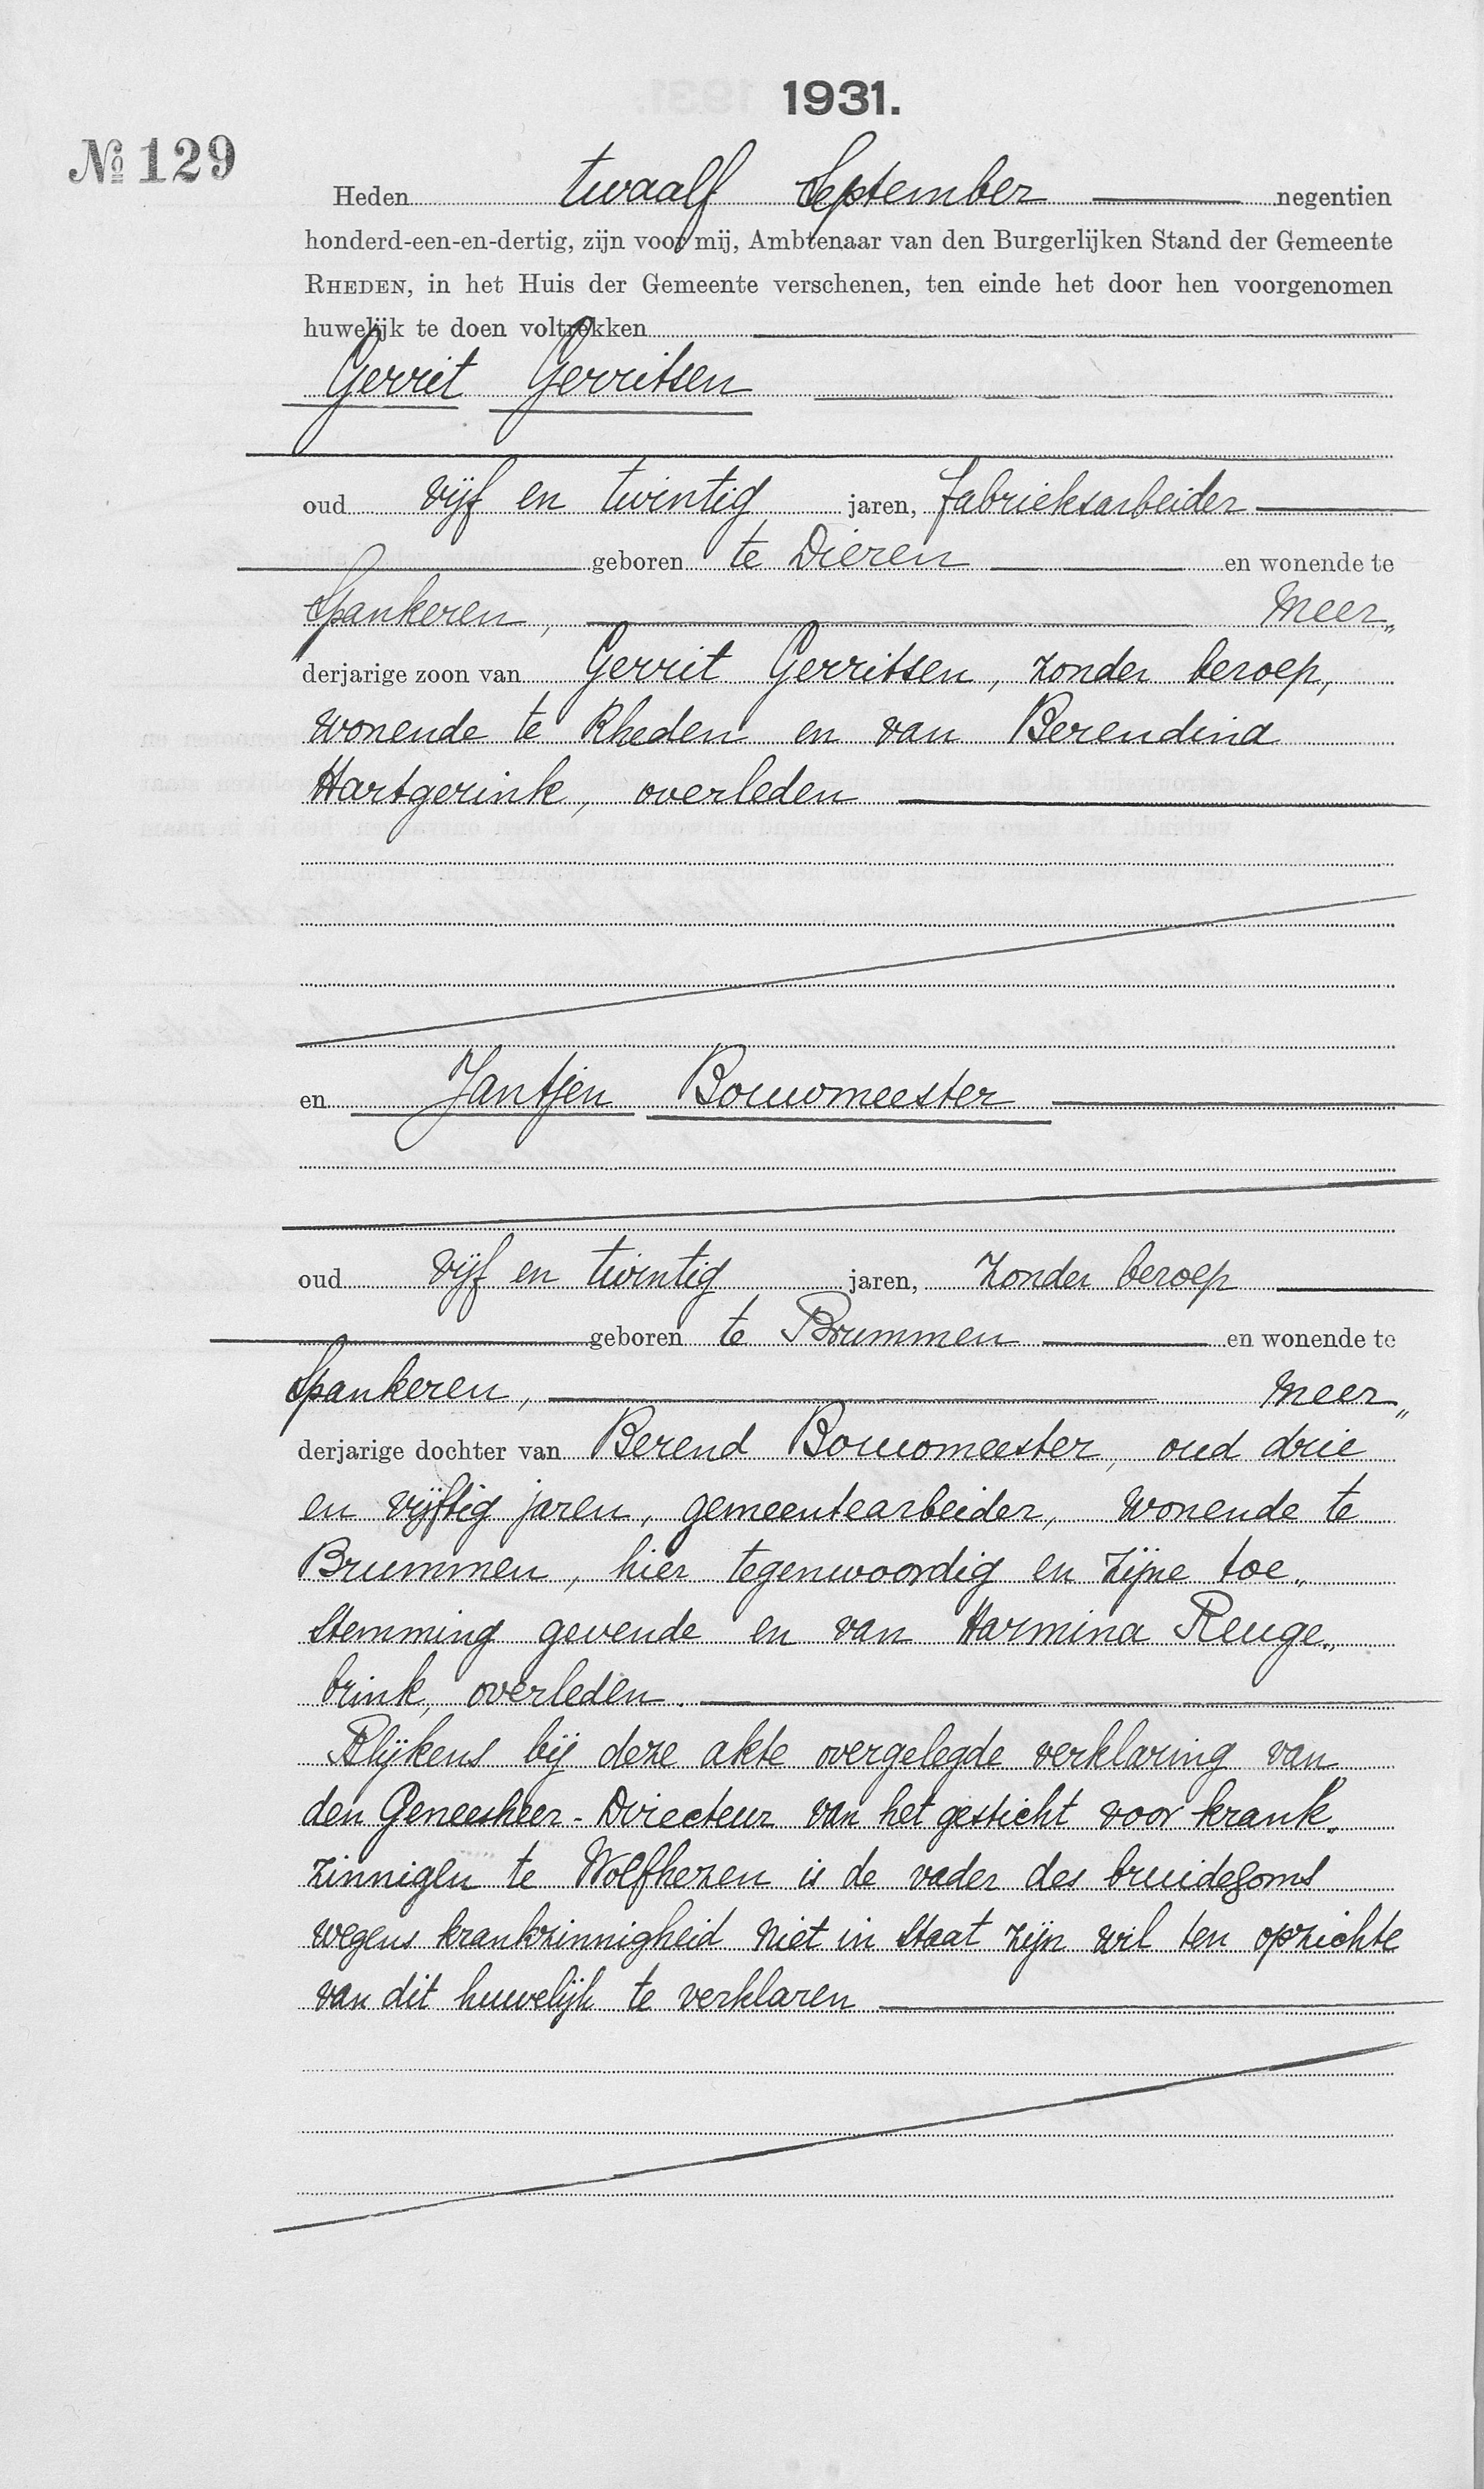 1931.
№ 129
Heden twaalf September negentien
honderd-een-en-dertig, zijn voor mij, Ambtenaar van den Burgerlijken Stand der Gemeente
RHEDEN, in het Huis der Gemeente verschenen, ten einde het door hen voorgenomen
huwelijk te doen voltrekken
Gerrit Gerritsen
oud vijf en twintig jaren, fabrieksarbeider
geboren te Dieren en wonende te
Spankeren, meer„
derjarige zoon van Gerrit Gerritsen, zonder beroep,
wonende te Rheden en van Berendina
Hartgerink, overleden
en Jantjen Bouwmeester
oud vijf en twintig jaren, zonder beroep
geboren te Brummen en wonende te
Spankeren, meer„
derjarige dochter van Berend Bouwmeester, oud drie
en vijftig jaren, gemeentearbeider, wonende te
Brummen, hier tegenwoordig en zijne toe„
stemming gevende en van Harmina Reuge„
brink, overleden.
Blijkens bij deze akte overgelegde verklaring van
den Geneesheer-Directeur van het gesticht voor krank„
zinnigen te Wolfhezen is de vader des bruidegoms
wegens krankzinnigheid niet in staat zijn wil ten opzichte
van dit huwelijk te verklaren